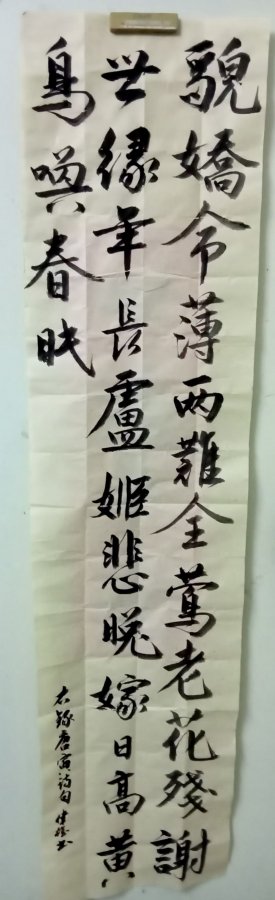 貌嬌命薄兩難全鶯老花殘謝
世緣年長盧姬悲晚嫁日高黃
鳥喚春眠
右錄唐寅詩句